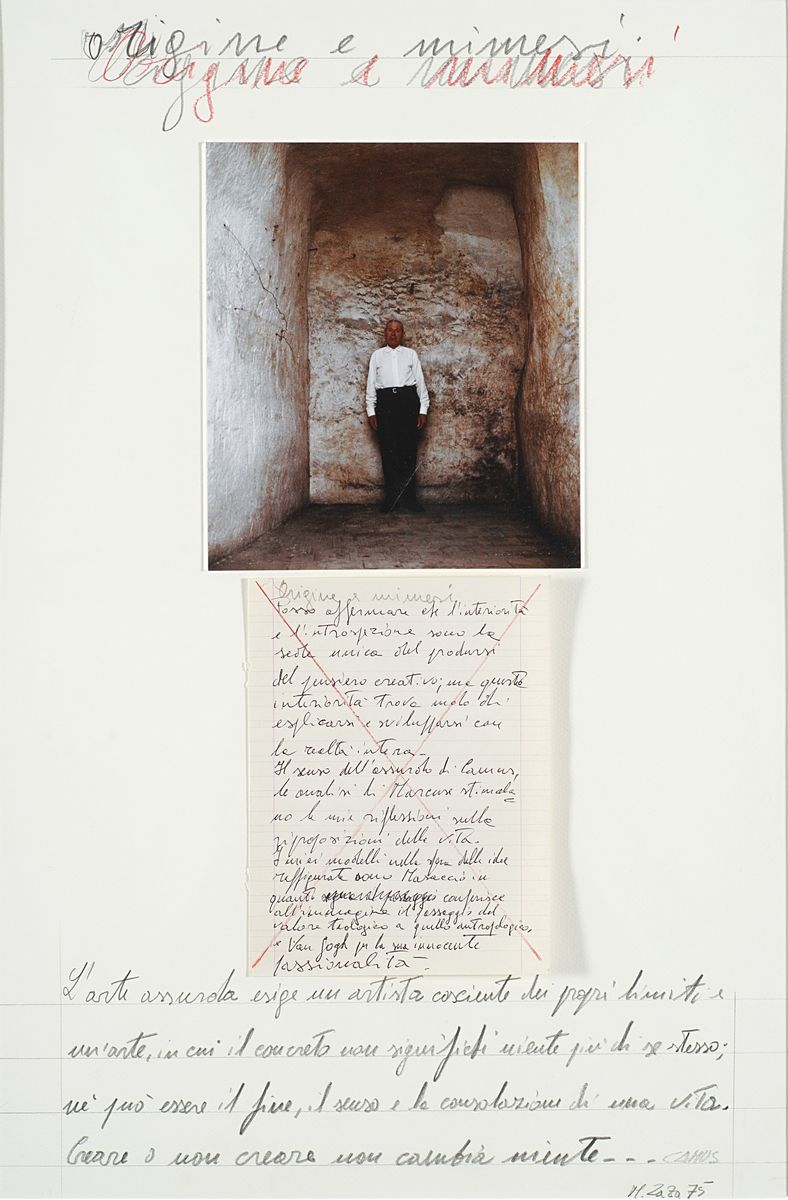 origine e mimesi
Origine e mimesi
Origine e mimesi
Posso affermare che l'interiorità
e l'introspezione sono la
sede unica del prodursi
del pensiero creativo; ma questa
interiorità trova modo di
esplicarsi e svilupparsi con
la realtà intera_
Il senso dell'assurdo di Camus,
le analisi di Marcuse stimola
no le mie riflessioni sulla
riproposizioni della vita.
I miei modelli nella sfera delle idee
raffigurate sono Masaccio in
quanto conferisce
all'immagine il passaggio del
valore teologico a quello antropologico,
e Van Gogh per la sua innocente
passionalità_
L'arte assurda esige un artista cosciente dei propri limiti e
un'arte, in cui il concreto non significhi niente più di se stesso;
nè può essere il fine, il senso e la consolazione di una vita.
Creare o non creare non cambia niente_ _ _ CAMUS
M. ZaZa 75